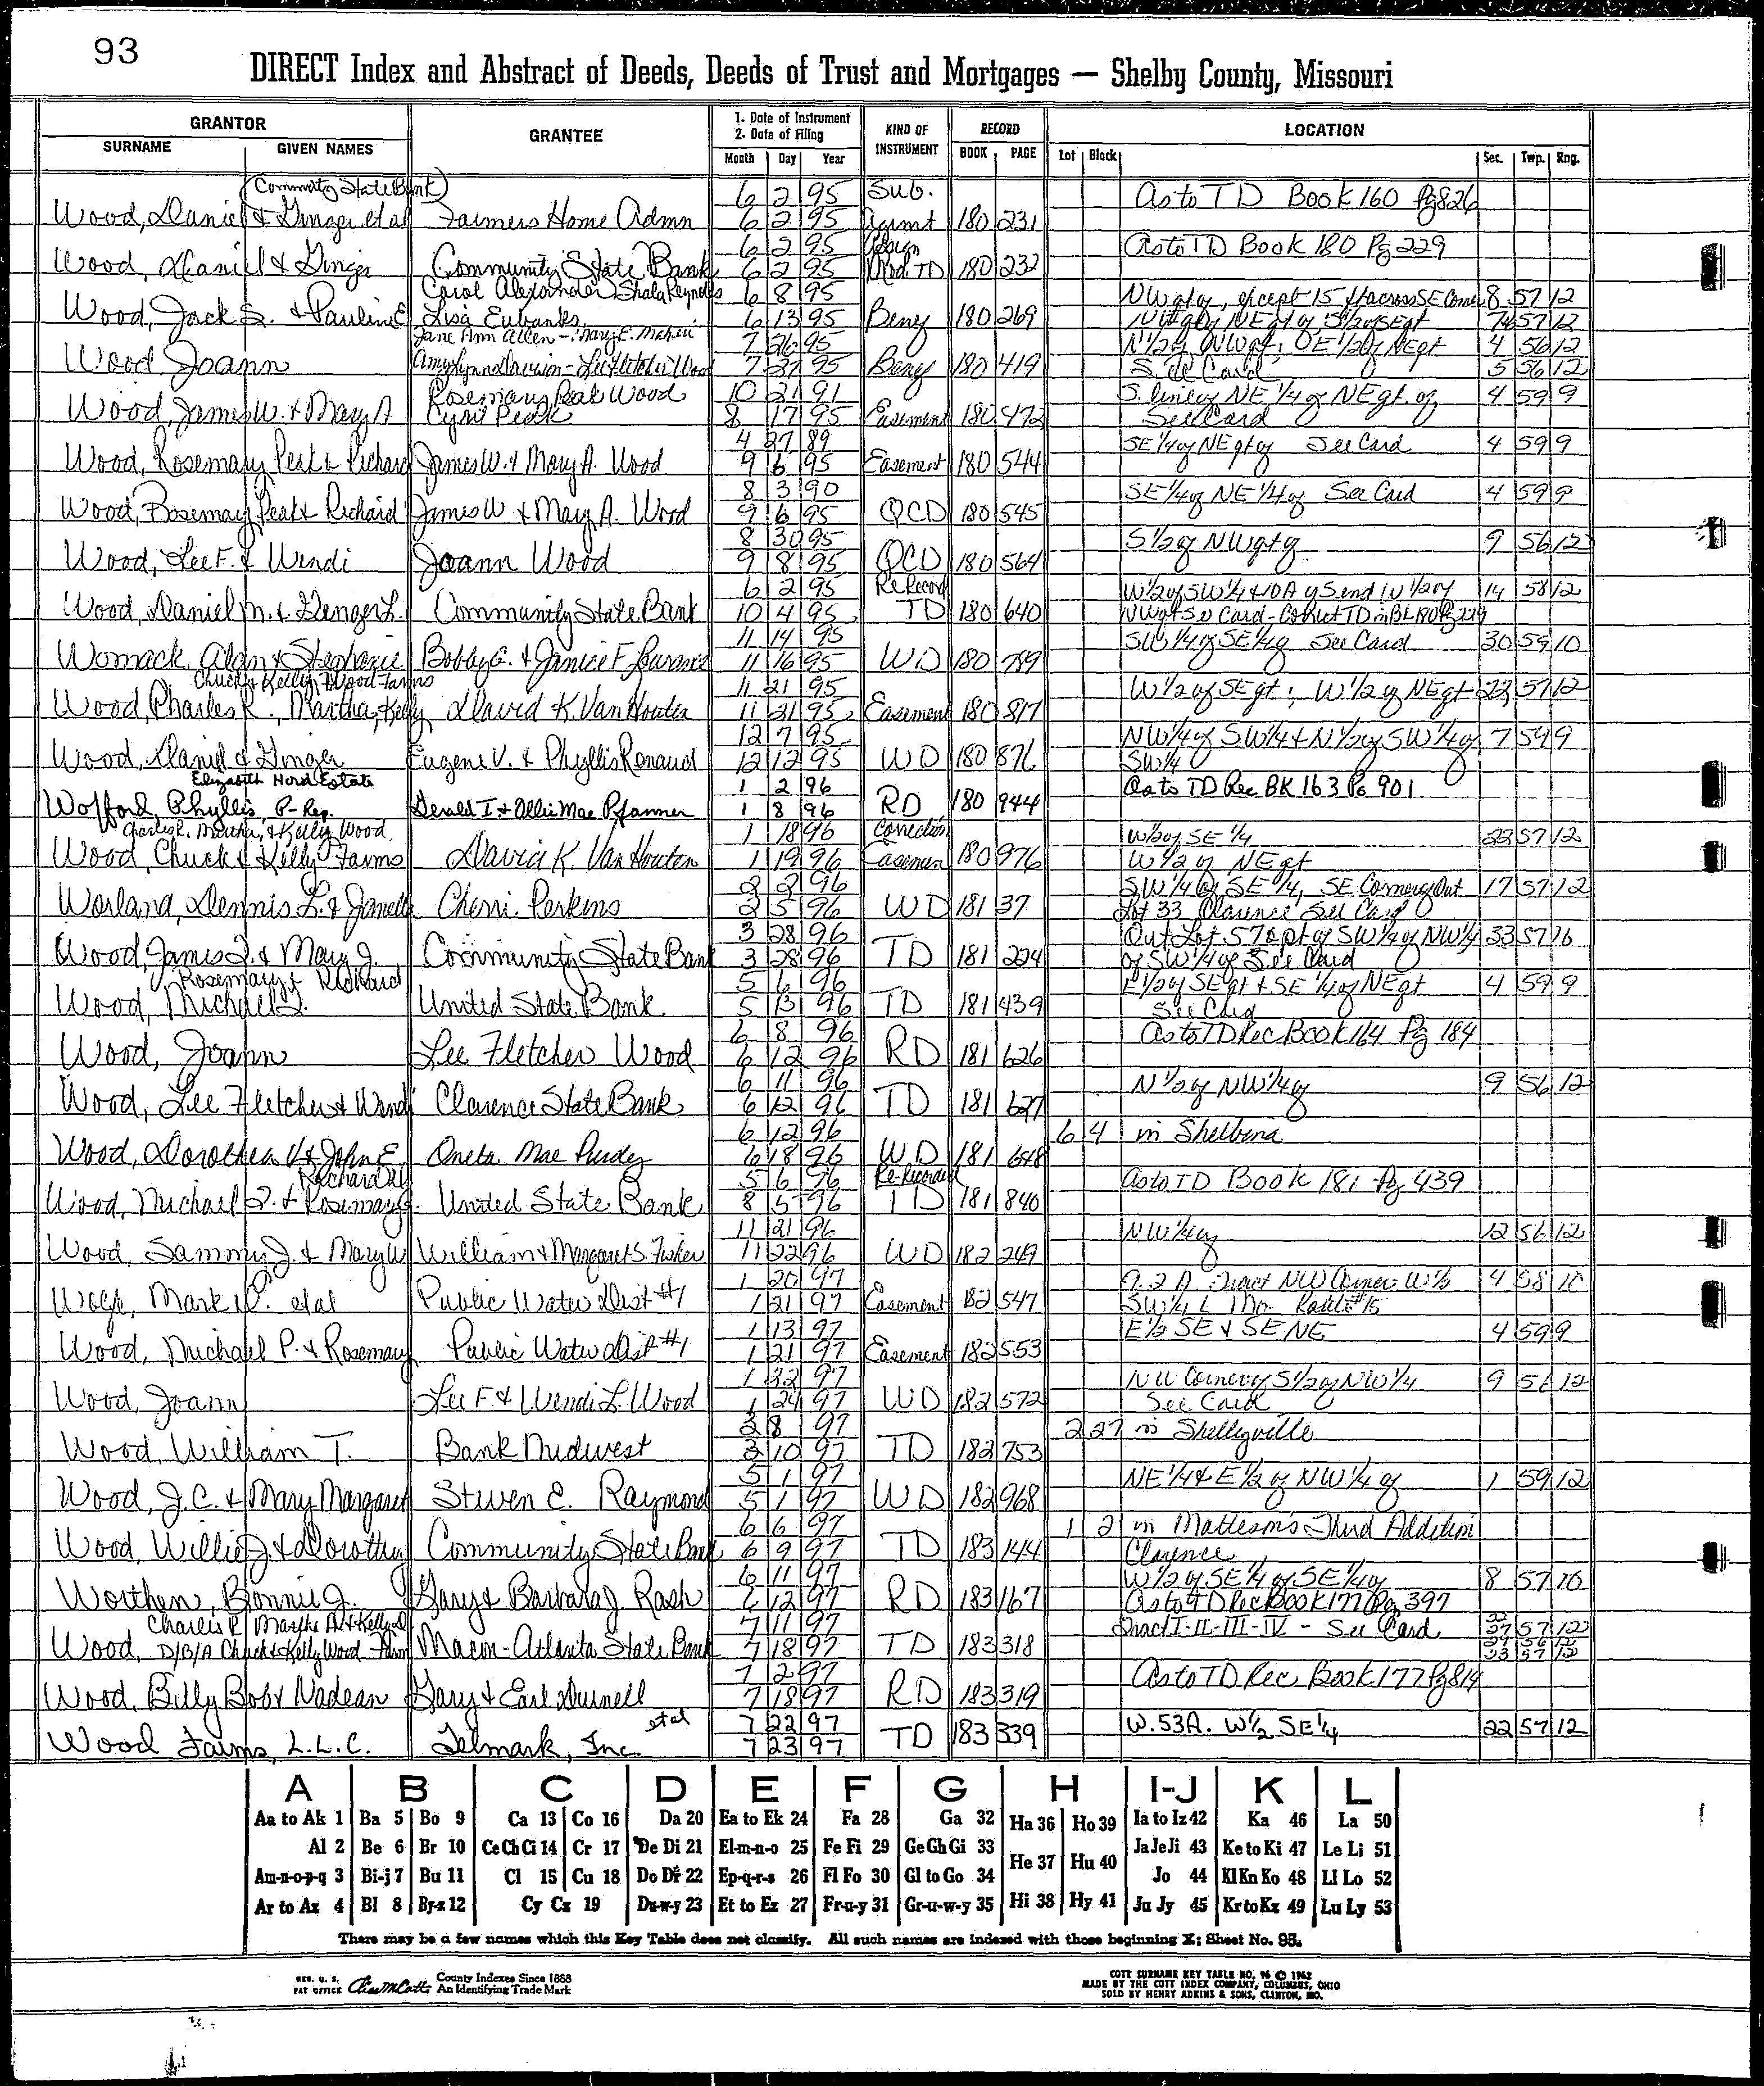 93
DIRECT Index and Abstract of Deeds, Deeds of Trust and Mortgages — Shelby County, Missouri
GRANTOR
SURNAME GIVEN NAMES
GRANTEE
1. Date of Instrument
2. Date of Filing
Month Day Year
KIND OF INSTRUMENT
RECORD
BOOK PAGE
LOCATION
Lot Block Sec. Twp. Rng.
(Community State Bank) 6 2 95 Sub. As to TD Book 160 Pg 826
Wood, Daniel & Ginger etal Farmers Home Admn 6 2 95 Agrmt 180 231
6 2 95 As to TD Book 180 Pg 229
Wood, Daniel & Ginger Community State Bank 6 2 95 TD 180 232
Carol Alexander, Shala Reynolds 6 8 95 NW qt of, except 15 ft across SE Corner 8 57 12
Wood, Jack S. & Pauline E Lisa Eubanks 6 13 95 Beny 180 269 57 12
Jane Ann Allen - Mary E. 7 26 95 4 56 12
Wood, Joann Lee Fletcher Wood 7 27 95 Beny 180 419 See Card 5 56 12
Rosemary Peak Wood 10 21 91 S. line of NE 1/4 of NE qt. of 4 59 9
Wood, James W. & Mary A Cyril Peak 8 17 95 Easement 180 472 See Card
4 27 89 SE 1/4 of NE qt of See Card 4 59 9
Wood, Rosemary Peak & Richard James W. & Mary A. Wood 9 6 95 Easement 180 544
8 3 90 SE 1/4 of NE 1/4 of See Card 4 59 9
Wood, Rosemary Peak & Richard James W & Mary A. Wood 9 6 95 QCD 180 545
8 30 95 S 1/2 of NW qt of 9 56 12
Wood, Lee F. & Wendi Joann Wood 9 8 95 QCD 180 564
6 2 95 Re Record W 1/2 of SW 1/4 & 10 A of S end W 1/2 of 14 58 12
Wood, Daniel M. & Ginger L. Community State Bank 10 4 95 TD 180 640 NW qt See Card - Correct TD in BK 180 Pg 229
11 14 95 SW 1/4 of SE 1/4 of See Card 30 59 10
Womack, Alan & Stephanie Bobby G. & Janice F. 11 16 95 WD 180 789
Chuck & Kelly Wood Farms 11 21 95 W 1/2 of SE qt; W 1/2 of NE qt 23 57 12
Wood, Charles R., Martha, Kelly David K. Van Houten 11 21 95 Easement 180 817
12 7 95 NW 1/4 of SW 1/4 & N 1/2 of SW 1/4 of 7 59 9
Wood, Daniel & Ginger Eugene V. & Phyllis Renaud 12 12 95 WD 180 876 SW 1/4
Elizabeth Hord Estate 1 2 96 As to TD Rec BK 163 Pg 901
Wofford, Phyllis, P-Rep. Gerald I & Ollie Mae Pfanner 1 8 96 RD 180 944
Charles R. Martha, & Kelly Wood 1 18 96 Correction W 1/2 of SE 1/4 22 57 12
Wood, Chuck & Kelly Farms David K. Van Houten 1 19 96 Easemen 180 976 W 1/2 of NE qt
2 2 96 SW 1/4 of SE 1/4, SE Corner of Out 17 57 12
Worland, Dennis L. & Janelle Cherri Perkins 2 5 96 WD 181 37 Lot 33 Clarence See Card
3 28 96 Out Lot 57 a pt of SW 1/4 of NW 1/4 33 57 16
Wood, James I. & Mary J. Community State Bank 3 28 96 TD 181 224 of SW 1/4 of See Card
Rosemary & Richard 5 6 96 E 1/2 of SE qt & SE 1/4 of NE qt 4 59 9
Wood, Michael P. United State Bank 5 13 96 TD 181 439 See Card
6 8 96 As to TD Rec Book 164 Pg 184
Wood, Joann Lee Fletcher Wood 6 12 96 RD 181 626
6 11 96 N 1/2 of NW 1/4 of 9 56 12
Wood, Lee Fletcher & Wendi Clarence State Bank 6 12 96 TD 181 627
6 12 96 6 4 in Shelbina
Wood, Dorothea V & John E. Oneta Mae Purdy 6 18 96 WD 181 648
Richard 5 6 96 Re-Recorded As to TD Book 181 Pg 439
Wood, Michael P. & Rosemary United State Bank 8 5 96 TD 181 840
11 21 96 NW 1/4 of 12 56 12
Wood, Sammy J. & Mary W William & Margaret S. Fisher 11 22 96 WD 182 249
1 20 97 9.2 A Tract NW Corner W 1/2 4 58 10
Wolfe, Mark W. etal Public Water Dist #1 1 21 97 Easement 182 547 SW 1/4
1 13 97 E 1/2 SE & SE NE 4 59 9
Wood, Michael P. & Rosemary Public Water Dist #1 1 21 97 Easement 182 553
1 22 97 NW Corner of S 1/2 of NW 1/4 9 56 12
Wood, Joann Lee F. & Wendi L. Wood 1 24 97 WD 182 572 See Card
3 8 97 2 27 in Shelbyville
Wood, William T. Bank Midwest 3 10 97 TD 182 753
5 1 97 NE 1/4 & E 1/2 of NW 1/4 of 1 59 12
Wood, J.C. & Mary Margaret Steven E. Raymond 5 1 97 WD 182 968
6 6 97 1 2 in Matteson's Third Addition
Wood, Willie J. & Dorothy Community State Bank 6 9 97 TD 183 144 Clarence
6 11 97 W 1/2 of SE 1/4 of SE 1/4 of 8 57 10
Worthen, Bonnie J. Gary & Barbara J. Rash 6 12 97 RD 183 167 As to TD Rec Book 177 Pg 397
Charles R Martha A & Kelly D 7 11 97 Tract I-II-III-IV - See Card 27 57 12
Wood, D/B/A Chuck & Kelly Wood Farm Macon-Atlanta State Bank 7 18 97 TD 183 318 23 57 12
7 2 97 As to TD Rec Book 177 Pg 814
Wood, Billy Bob & Nadean Gary & Earl Durnell 7 18 97 RD 183 319
etal 7 22 97 W. 53A. W 1/2 SE 1/4 22 57 12
Wood Farms, L.L.C. Telmark, Inc. 7 23 97 TD 183 339
A B C D E F G H I-J K L
Aa to Ak 1 Ba 5 Bo 9 Ca 13 Co 16 Da 20 Ea to Ek 24 Fa 28 Ga 32 Ha 36 Ho 39 Ia to Iz 42 Ka 46 La 50
Al 2 Be 6 Br 10 Ce Ch Ci 14 Cr 17 De Di 21 El-m-n-o 25 Fe Fi 29 Ge Gh Gi 33 He 37 Hu 40 Ja Je Ji 43 Ke to Ki 47 Le Li 51
Am-n-o-p-q 3 Bi-j 7 Bu 11 Cl 15 Cu 18 Do Dr 22 Ep-q-r-s 26 Fl Fo 30 Gl to Go 34 Hi 38 Hy 41 Jo 44 Kl Kn Ko 48 Ll Lo 52
Ar to Az 4 Bl 8 By-z 12 Cy Cz 19 Du-w-y 23 Et to Ez 27 Fr-u-y 31 Gr-u-w-y 35 Ju Jy 45 Kr to Kz 49 Lu Ly 53
There may be a few names which this Key Table does not classify. All such names are indexed with those beginning X; Sheet No. 95.
REG. U. S. PAT OFFICE County Indexes Since 1888
An Identifying Trade Mark
COTT SURNAME KEY TABLE NO. 96 © 1962
MADE BY THE COTT INDEX COMPANY, COLUMBUS, OHIO
SOLD BY HENRY ADKINS & SONS, CLINTON, MO.